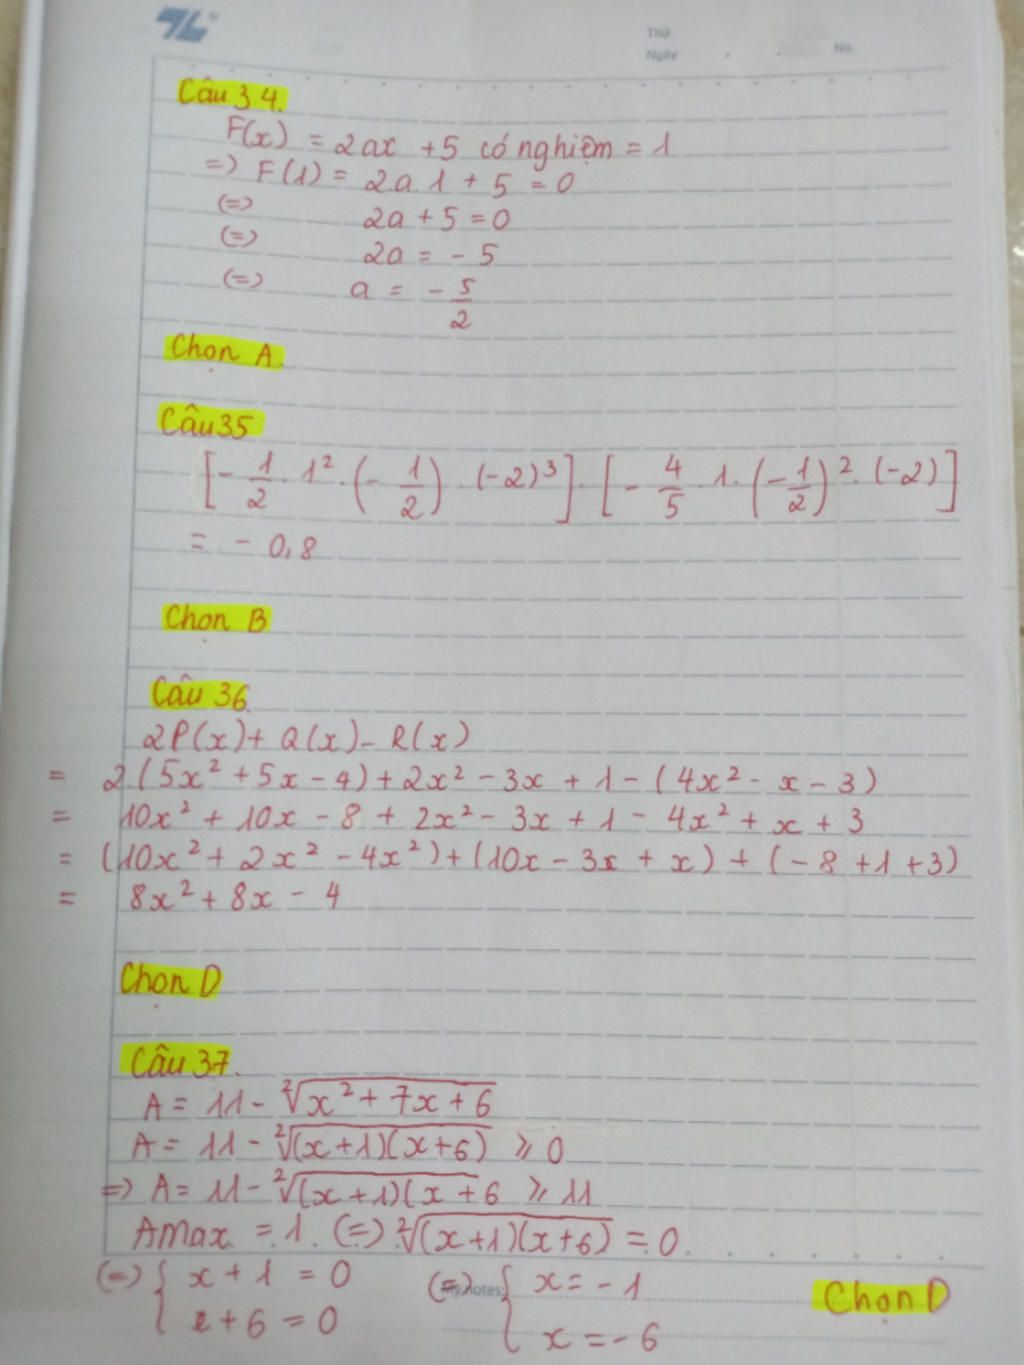 Thứ
Ngày No.
Câu 34.
F(x) = 2ax + 5 có nghiệm = 1
=> F(1) = 2a.1 + 5 = 0
(=> 2a + 5 = 0
(=> 2a = - 5
(=> a = - 5/2
Chọn A.
Câu 35
[- 1/2 . 1² . (- 1/2) . (-2)³] . [- 4/5 . 1 . (- 1/2)² . (-2)]
= - 0,8
Chọn B
Câu 36.
2P(x) + Q(x) - R(x)
= 2.(5x² + 5x - 4) + 2x² - 3x + 1 - (4x² - x - 3)
= 10x² + 10x - 8 + 2x² - 3x + 1 - 4x² + x + 3
= (10x² + 2x² - 4x²) + (10x - 3x + x) + (-8 + 1 + 3)
= 8x² + 8x - 4
Chọn D
Câu 37.
A = 11 - ²√x² + 7x + 6
A = 11 - ²√(x+1)(x+6) ⩾ 0
=> A = 11 - ²√(x+1)(x+6 ⩾ 11
AMax = 1. (=> ²√(x+1)(x+6) = 0
(=> { x + 1 = 0 (=> { x = -1 Chọn D
x + 6 = 0 x = -6